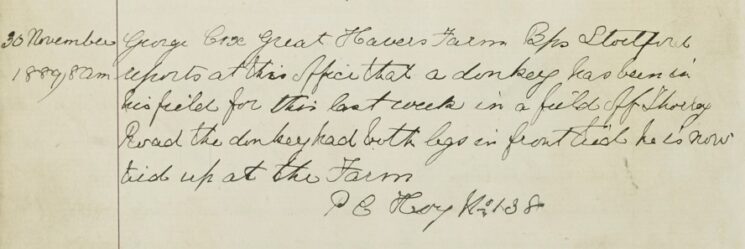 30 November George Cox Great Havers Farm Bps Stortford
1889, 8am reports at this office that a donkey has been in
his field for this last week in a field off Thorley
Road the donkey had both legs in front tied he is now
tied up at the Farm
P C Hoy 138